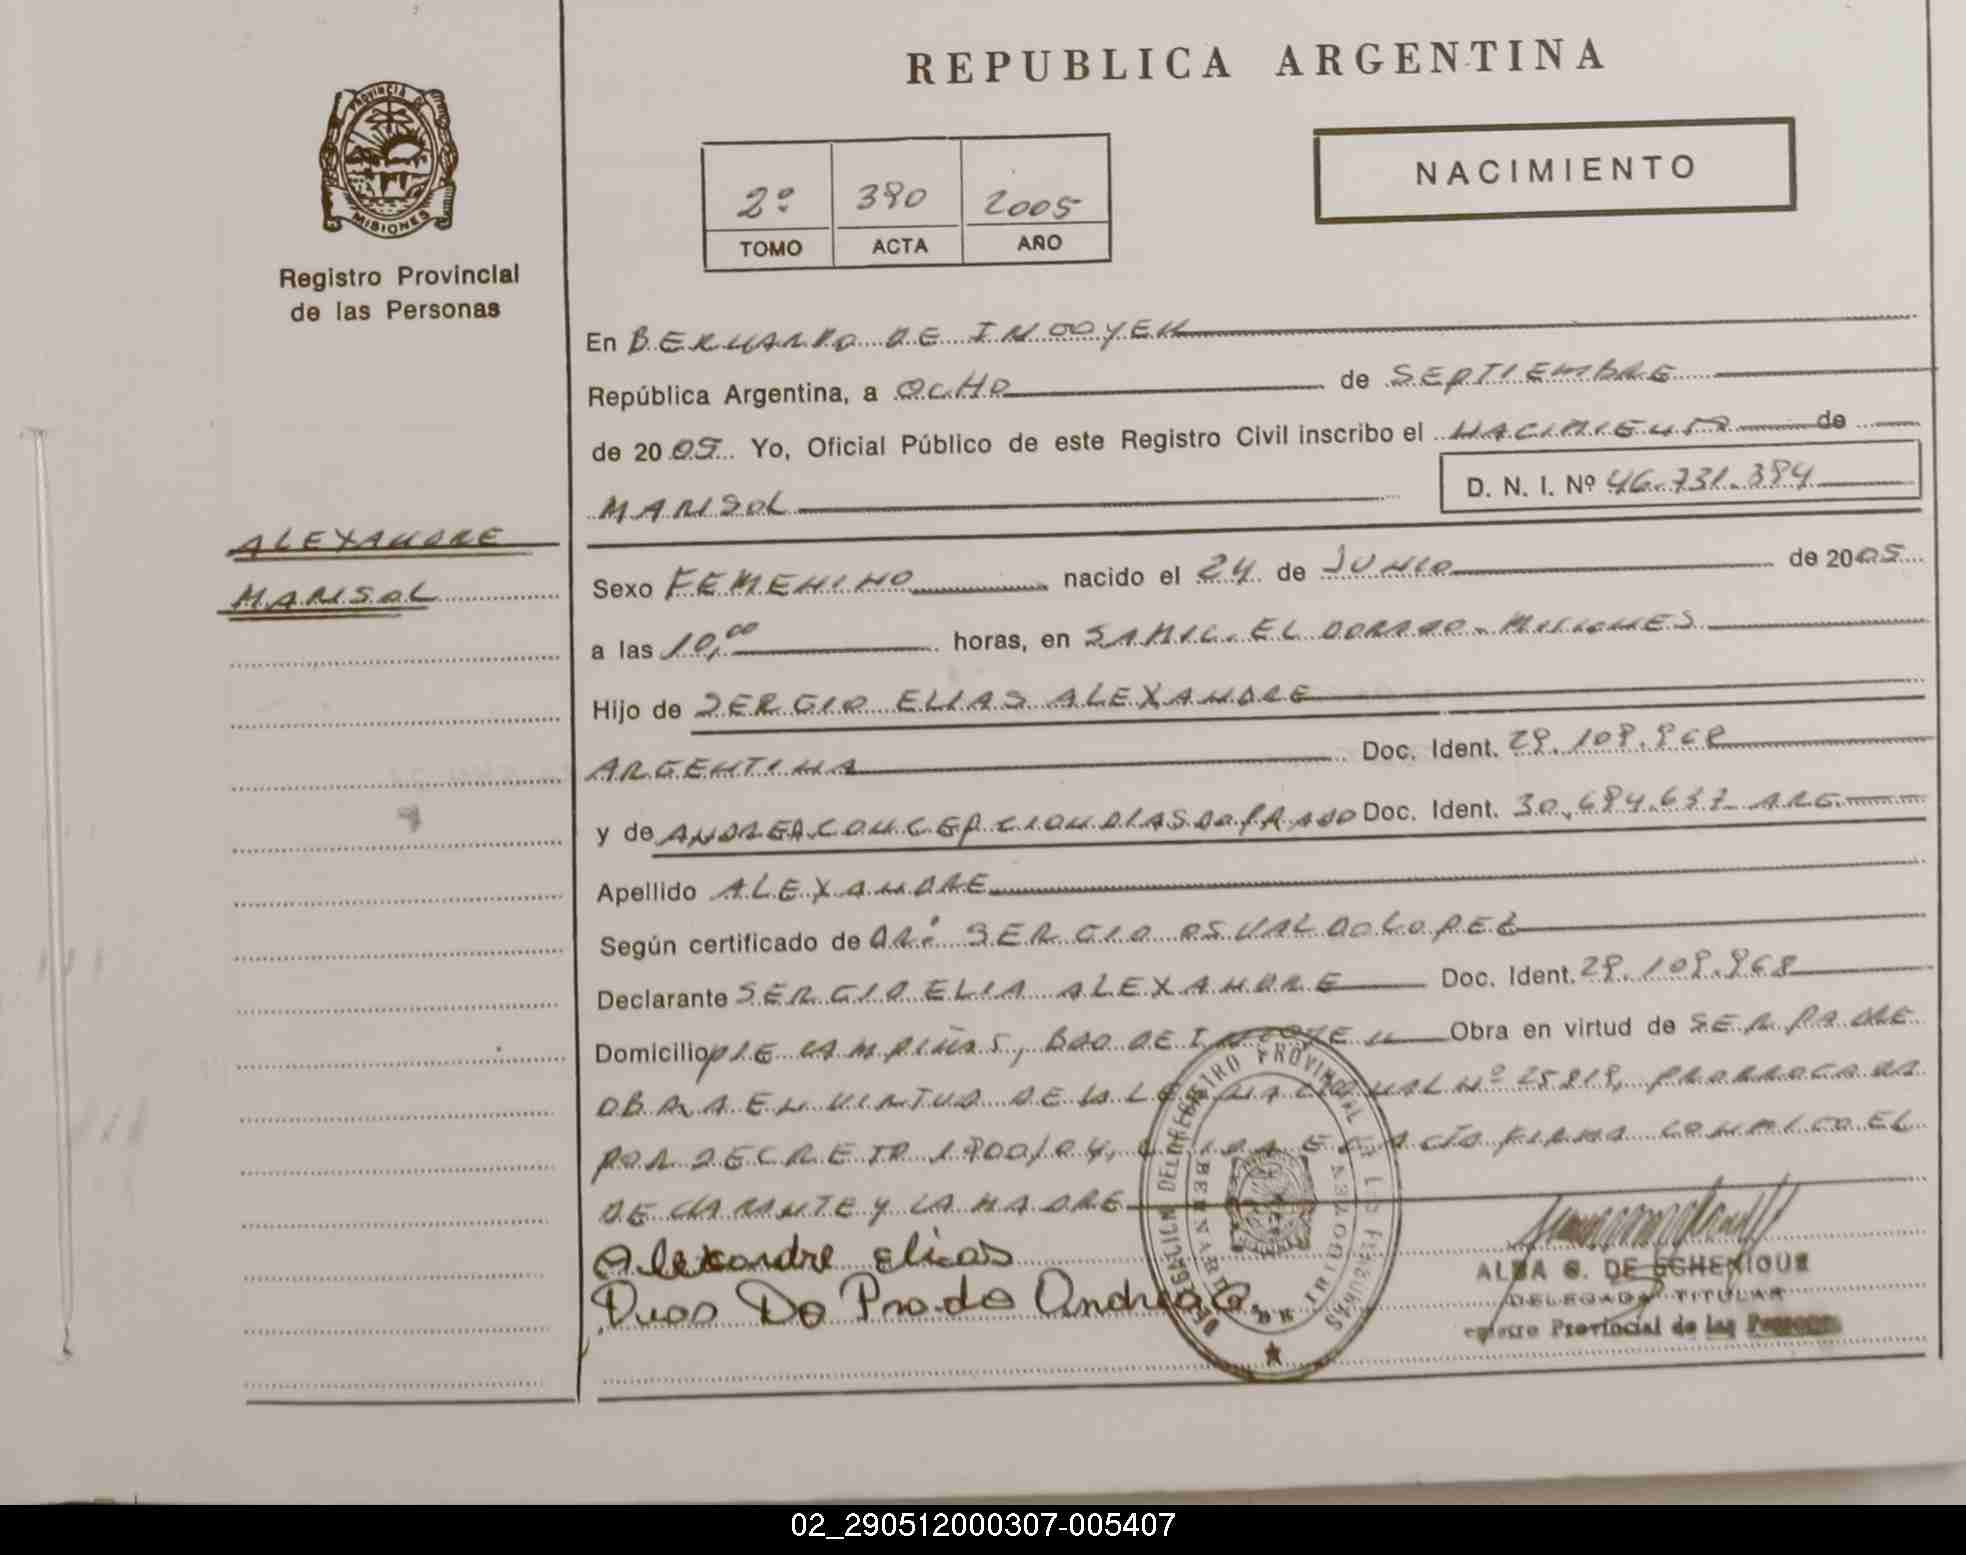 REPUBLICA ARGENTINA
PROVINCIA DE MISIONES
Registro Provincial
de las Personas
2º 390 2005
TOMO ACTA AÑO
NACIMIENTO
En BERNARDO DE IRIGOYEN
República Argentina, a OCHO de SEPTIEMBRE
de 2005 Yo, Oficial Público de este Registro Civil inscribo el NACIMIENTO de
MARISOL D. N. I. Nº 46.731.394
ALEXANDRE
MARISOL
Sexo FEMENINO nacido el 24 de JUNIO de 2005
a las 10,00 horas, en SAMIC. EL DORADO - MISIONES
Hijo de SERGIO ELIAS ALEXANDRE
ARGENTINA Doc. Ident. 29.109.968
y de ANDREA CONCEPCION DIAS DO PRADO Doc. Ident. 30.694.637 ARG.
Apellido ALEXANDRE
Según certificado de DR: SERGIO OSVALDO LOPEZ
Declarante SERGIO ELIA ALEXANDRE Doc. Ident. 29.109.968
Domicilio PJE CAMPIÑAS, BDO DE IRIGOYEN Obra en virtud de SER PADRE
OBRA EN VIRTUD DE LA LEY NACIONAL Nº 25819, PRORROGADA
POR DECRETO 1900/04, LEIDA EL ACTA FIRMA CONMIGO EL
DECLARANTE Y LA MADRE
Alexandre elias
Dias Do Prado Andrea C.
DELEGACION DEL REGISTRO PROVINCIAL DE LAS PERSONAS
BERNARDO DE IRIGOYEN
ALBA G. DE ECHENIQUE
DELEGADA TITULAR
Registro Provincial de las Personas
02_290512000307-005407